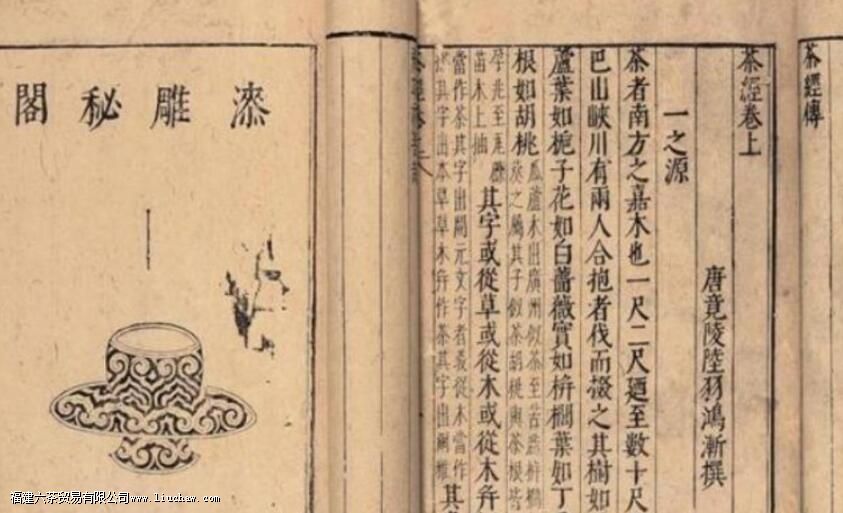 茶經傳
茶經卷上
唐竟陵陸羽鴻漸撰
一之源
茶者南方之嘉木也一尺二尺廼至數十尺
巴山峽川有兩人合抱者伐而掇之其樹如
蘆葉如梔子花如白薔薇實如栟櫚葉如丁
根如胡桃
瓜蘆木出廣州似茶至苦澁栟櫚
葵之屬其子似茶胡桃與茶根皆
孕兆至瓦礫
苗木上抽
其字或從草或從木或從木并
當作茶其字出開元文字者義從木當作
其字出本草草木并作茶其字出爾雅
其
漆雕秘閣
福建六茶贸易有限公司www.liuchaw.com